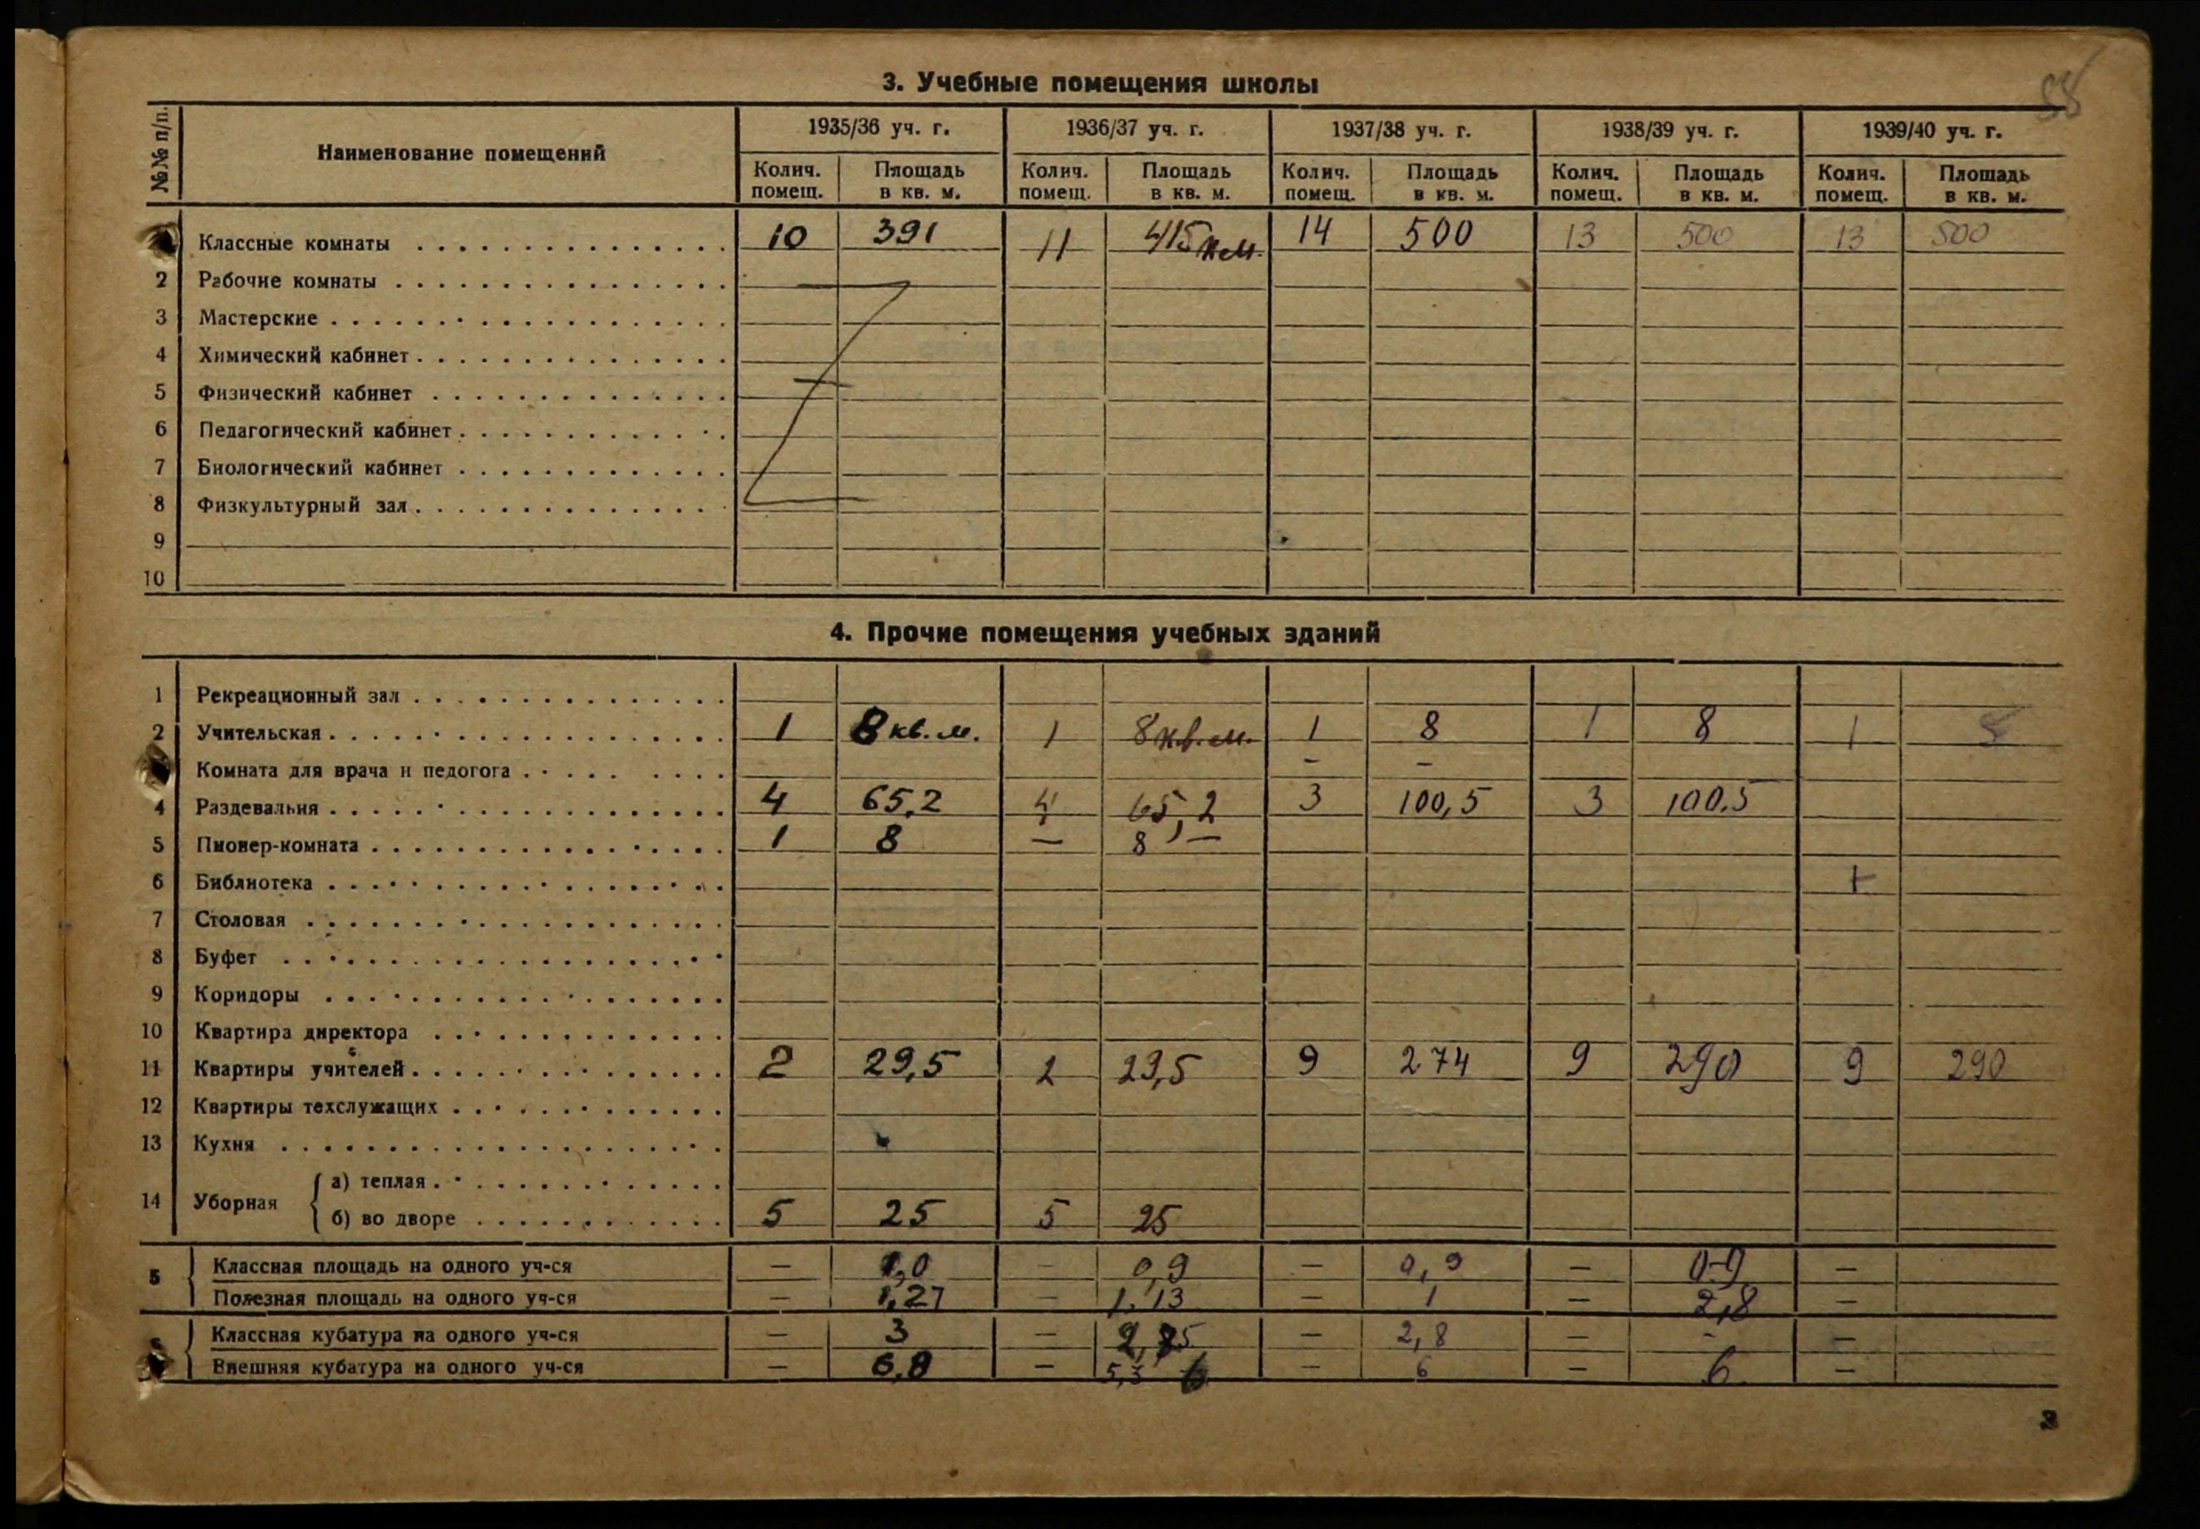 88
3. Учебные помещения школы
№№ п/п. Наименование помещений 1935/36 уч. г. 1936/37 уч. г. 1937/38 уч. г. 1938/39 уч. г. 1939/40 уч. г.
Колич. помещ. Площадь в кв. м. Колич. помещ. Площадь в кв. м. Колич. помещ. Площадь в кв. м. Колич. помещ. Площадь в кв. м. Колич. помещ. Площадь в кв. м.
Классные комнаты 10 391 11 415 к.м. 14 500 13 500 13 500
2 Рабочие комнаты
3 Мастерские
4 Химический кабинет
5 Физический кабинет
6 Педагогический кабинет
7 Биологический кабинет
8 Физкультурный зал
9
10
4. Прочие помещения учебных зданий
1 Рекреационный зал
2 Учительская 1 8 кв. м. 1 8 кв. м. 1 8 1 8 1 8
Комната для врача и педогога – –
4 Раздевальня 4 65,2 4 65,2 3 100,5 3 100,5
5 Пионер-комната 1 8 — 8 —
6 Библиотека +
7 Столовая
8 Буфет
9 Коридоры
10 Квартира директора
11 Квартиры учителей 2 29,5 2 29,5 9 274 9 290 9 290
12 Квартиры техслужащих
13 Кухня
14 Уборная а) теплая
б) во дворе 5 25 5 25
5 Классная площадь на одного уч-ся — 1,0 — 0,9 — 0,9 — 0-9 —
Полезная площадь на одного уч-ся — 1,27 — 1,13 — 1 — 2,8 —
Классная кубатура на одного уч-ся — 3 — 2,85 — 2,8 — - —
Внешняя кубатура на одного уч-ся — 6,8 — 5,3 6 — 6 — 6 —
3